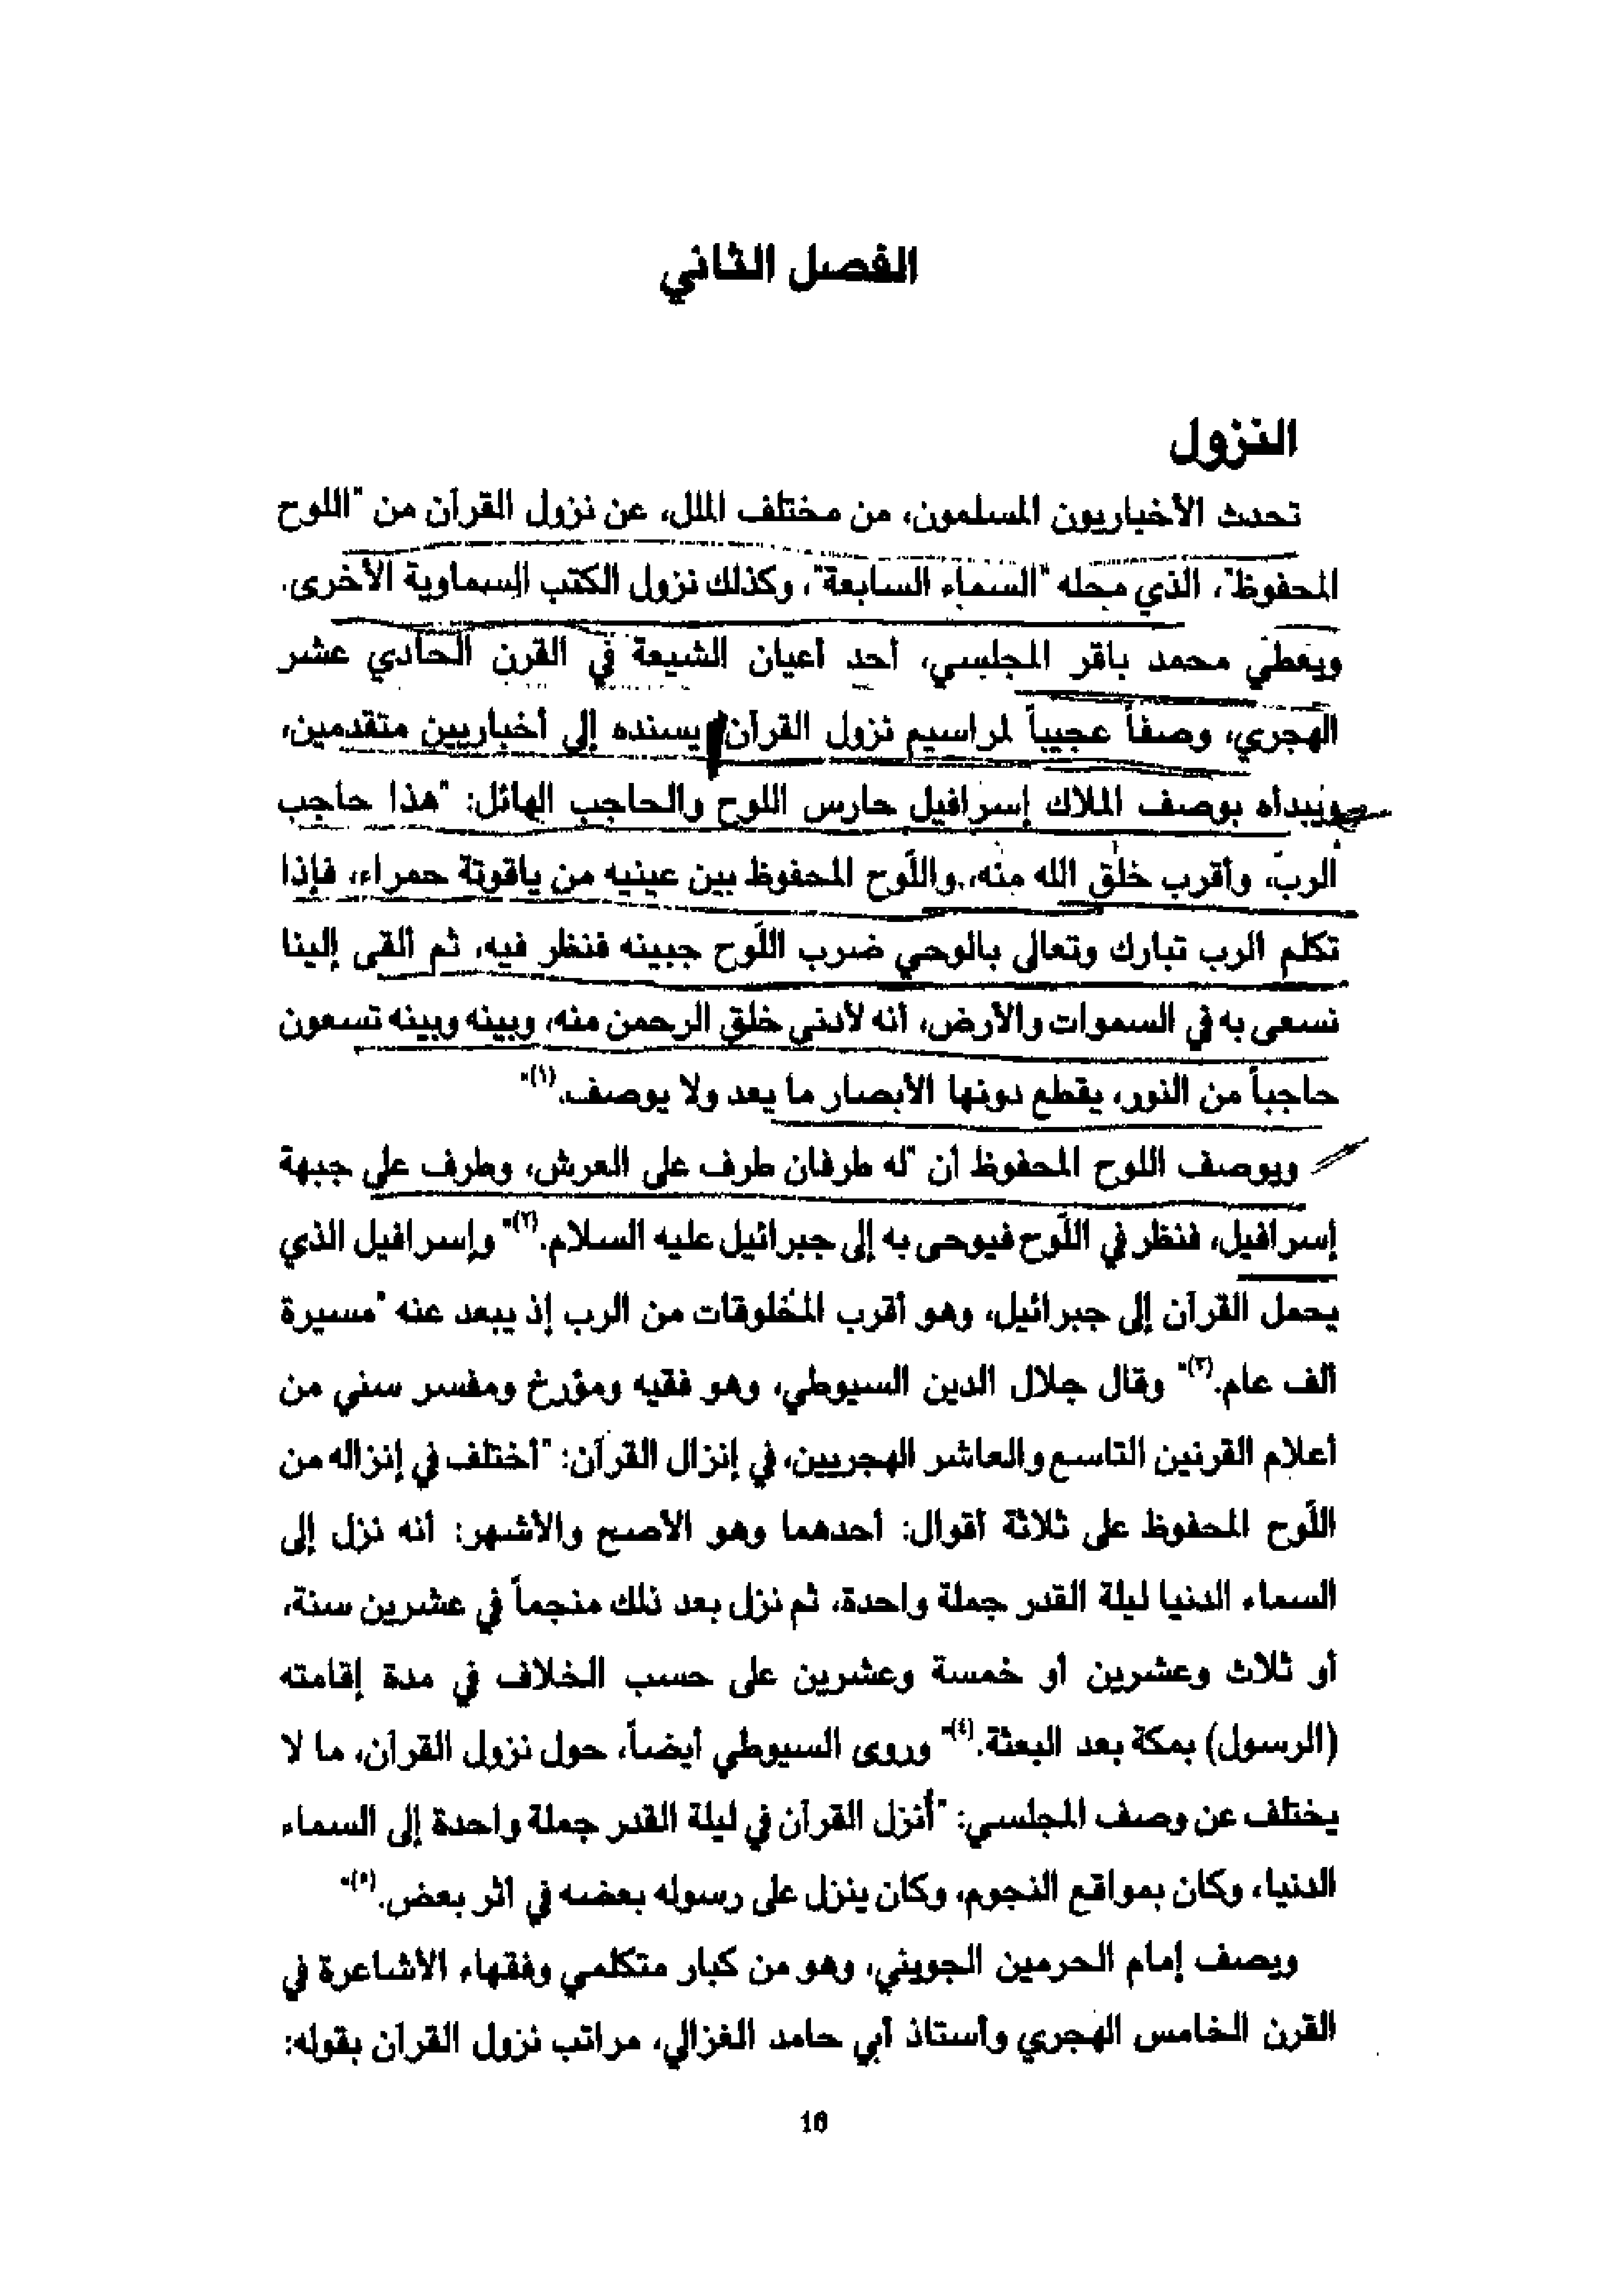 الفصل الثاني
النزول
تحدث الأخباريون المسلمون، من مختلف الملل، عن نزول القرآن من "اللوح
المحفوظ"، الذي محله "السماء السابعة"، وكذلك نزول الكتب السماوية الأخرى.
ويعطي محمد باقر المجلسي، أحد أعيان الشيعة في القرن الحادي عشر
الهجري، وصفاً عجيباً لمراسيم نزول القرآن يسنده إلى أخباريين متقدمين،
ويبدأه بوصف الملاك إسرافيل حارس اللوح والحاجب الهائل: "هذا حاجب
الربّ، وأقرب خلق الله منه، واللّوح المحفوظ بين عينيه من ياقوتة حمراء، فإذا
تكلم الرب تبارك وتعالى بالوحي ضرب اللّوح جبينه فنظر فيه، ثم ألقى إلينا
نسعى به في السموات والأرض، أنه لأدنى خلق الرحمن منه، وبينه وبينه تسعون
حاجباً من النور، يقطع دونها الأبصار ما يعد ولا يوصف.(١)"
ويوصف اللوح المحفوظ أن "له طرفان طرف على العرش، وطرف على جبهة
إسرافيل، فنظر في اللّوح فيوحى به إلى جبرائيل عليه السلام.(٢)" وإسرافيل الذي
يحمل القرآن إلى جبرائيل، وهو أقرب المخلوقات من الرب إذ يبعد عنه "مسيرة
ألف عام.(٣)" وقال جلال الدين السيوطي، وهو فقيه ومؤرخ ومفسر سني من
أعلام القرنين التاسع والعاشر الهجريين، في إنزال القرآن: "أختلف في إنزاله من
اللّوح المحفوظ على ثلاثة أقوال: أحدهما وهو الأصح والأشهر: أنه نزل إلى
السماء الدنيا ليلة القدر جملة واحدة، ثم نزل بعد ذلك منجماً في عشرين سنة،
أو ثلاث وعشرين أو خمسة وعشرين على حسب الخلاف في مدة إقامته
(الرسول) بمكة بعد البعثة.(٤)" وروى السيوطي أيضاً، حول نزول القرآن، ما لا
يختلف عن وصف المجلسي: "أُنزل القرآن في ليلة القدر جملة واحدة إلى السماء
الدنيا، وكان بمواقع النجوم، وكان ينزل على رسوله بعضه في أثر بعض.(٥)"
ويصف إمام الحرمين الجويني، وهو من كبار متكلمي وفقهاء الأشاعرة في
القرن الخامس الهجري وأستاذ أبي حامد الغزالي، مراتب نزول القرآن بقوله:
16